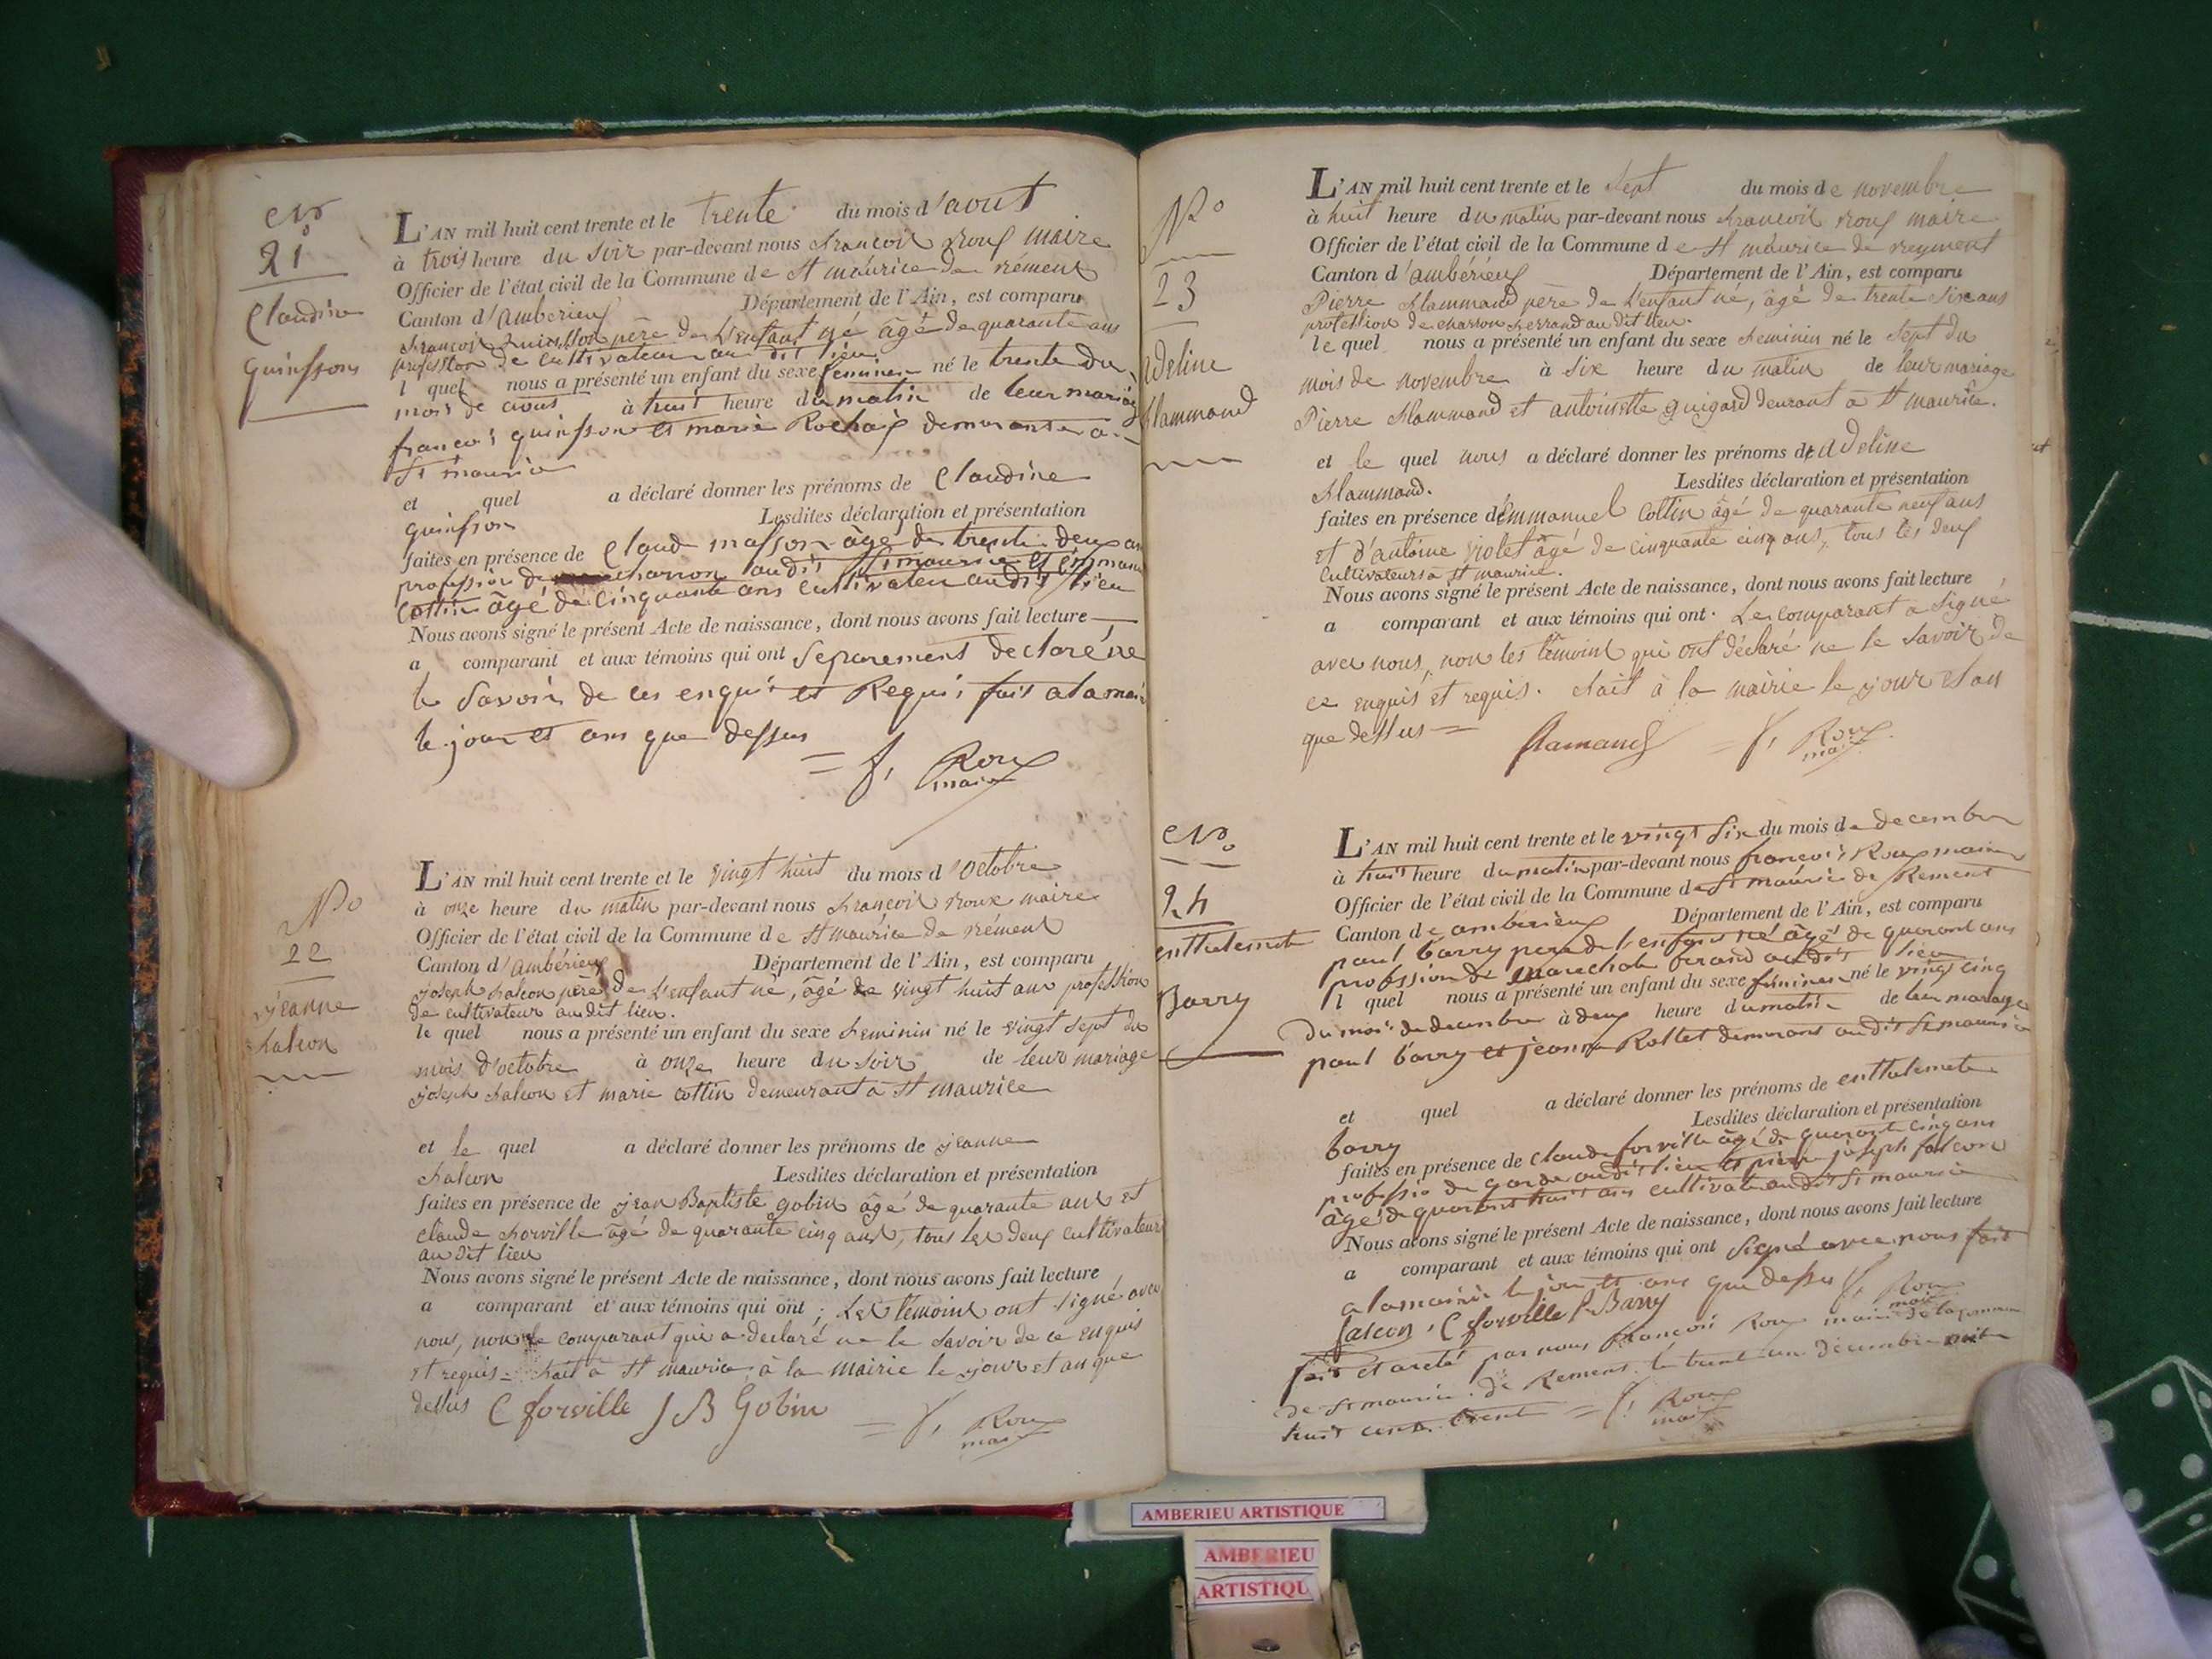 No
21
Claudine
quinsson
L'AN mil huit cent trente et le trente du mois d'aout
à trois heure du soir par-devant nous françois Roux maire
Officier de l'état civil de la Commune de St maurice de rément
Canton d'ambérieux Département de l'Ain, est comparu
françois quinsson père de l'enfant né âgé de quarante ans
profession de cultivateur au dit lieu
l quel nous a présenté un enfant du sexe feminin né le trente du
mois de aout à huit heure du matin de leur mariage
françois quinsson et marie Rochaix demurant a
St maurice
et quel a déclaré donner les prénoms de Claudine
quinsson Lesdites déclaration et présentation
faites en présence de Claude masson âgé de trente deux an
profession de charron audit St maurice et
Cottin âgé de Cinquante ans cultivateur audit lieu
Nous avons signé le présent Acte de naissance, dont nous avons fait lecture
a comparant et aux témoins qui ont separement declaré ne
le savoir de ces enqui et Requi fait a la mairie
le jour et ans que dessus
= f, Roux
maire
No
22
jeanne
falcon
L'AN mil huit cent trente et le vingt huit du mois d'octobre
à onze heure du matin par-devant nous françois roux maire
Officier de l'état civil de la Commune de St maurice de rément
Canton d'ambérieux Département de l'Ain, est comparu
joseph falcon père de l'enfant né, âgé de vingt huit ans profession
de cultivateur au dit lieu.
le quel nous a présenté un enfant du sexe feminin né le vingt sept du
mois d'octobre à onze heure du soir de leur mariage
joseph falcon et marie cottin demeurant à St maurice
et le quel a déclaré donner les prénoms de jeanne
falcon Lesdites déclaration et présentation
faites en présence de jean Baptiste gobin âgé de quarante ans et
claude forville âgé de quarante cinq ans, tous les deux cultivateurs
au dit lieu
Nous avons signé le présent Acte de naissance, dont nous avons fait lecture
a comparant et aux témoins qui ont ; Les témoins ont signé avec
nous, non le comparant qui a declaré ne le savoir de ce enquis
et requis = fait à St maurice à la mairie le jour et an que
dessus C forville J B Gobin = f, Roux
maire
No
23
adeline
flammand
L'AN mil huit cent trente et le sept du mois de novembre
à huit heure du matin par-devant nous françois roux maire
Officier de l'état civil de la Commune de St maurice de reyment
Canton d'ambérieux Département de l'Ain, est comparu
Pierre flammand père de l'enfant né, âgé de trente six ans
profession de charron ferrand au dit lieu.
le quel nous a présenté un enfant du sexe feminin né le sept du
mois de novembre à six heure du matin de leur mariage
Pierre flammand et antoinette guigard deurant à St maurice.
et le quel nous a déclaré donner les prénoms de adeline
flammand. Lesdites déclaration et présentation
faites en présence d'Emmanuel Cottin âgé de quarante neuf ans
et d'antoine violet âgé de cinquante cinq ans, tous les deux
cultivateurs à St maurice.
Nous avons signé le présent Acte de naissance, dont nous avons fait lecture
a comparant et aux témoins qui ont. Le comparant a signé
avec nous, non les témoins qui ont déclaré ne le savoir de
ce enquis et requis. fait à la mairie le jour et an
que dessus = flamand = f, Roux
maire
No
24
enthelemete
Barry
L'AN mil huit cent trente et le vingt six du mois de decembre
à huit heure du matin par-devant nous françois Roux maire
Officier de l'état civil de la Commune de St maurice de Rement
Canton de amberieux Département de l'Ain, est comparu
paul barry pere de l'enfans né âgé de quarant ans
profession de marechale ferand audit lieu
l quel nous a présenté un enfant du sexe féminin né le vingt cinq
du mois de decembre à deux heure du matin de leur mariage
paul barry et jeanne Rollet demurant audit St maurice
et quel a déclaré donner les prénoms de enthelemete
barry Lesdites déclaration et présentation
faites en présence de claude forville âgé de quarant cinq ans
professio de garde audit lieu et pierre joseph falcon
âgé de quarant huit ans cultivateur audit St maurice
Nous avons signé le présent Acte de naissance, dont nous avons fait lecture
a comparant et aux témoins qui ont signé avec nous fait
a la mairie le jour et ans que dessus f, Roux
maire
falcon, C forville P Barry
fait et areté par nous françois Roux maire de la commune
de St maurice de Remens le trent un décembre mil
huit cents trent = f, Roux
maire
AMBERIEU ARTISTIQUE
AMBERIEU
ARTISTIQU